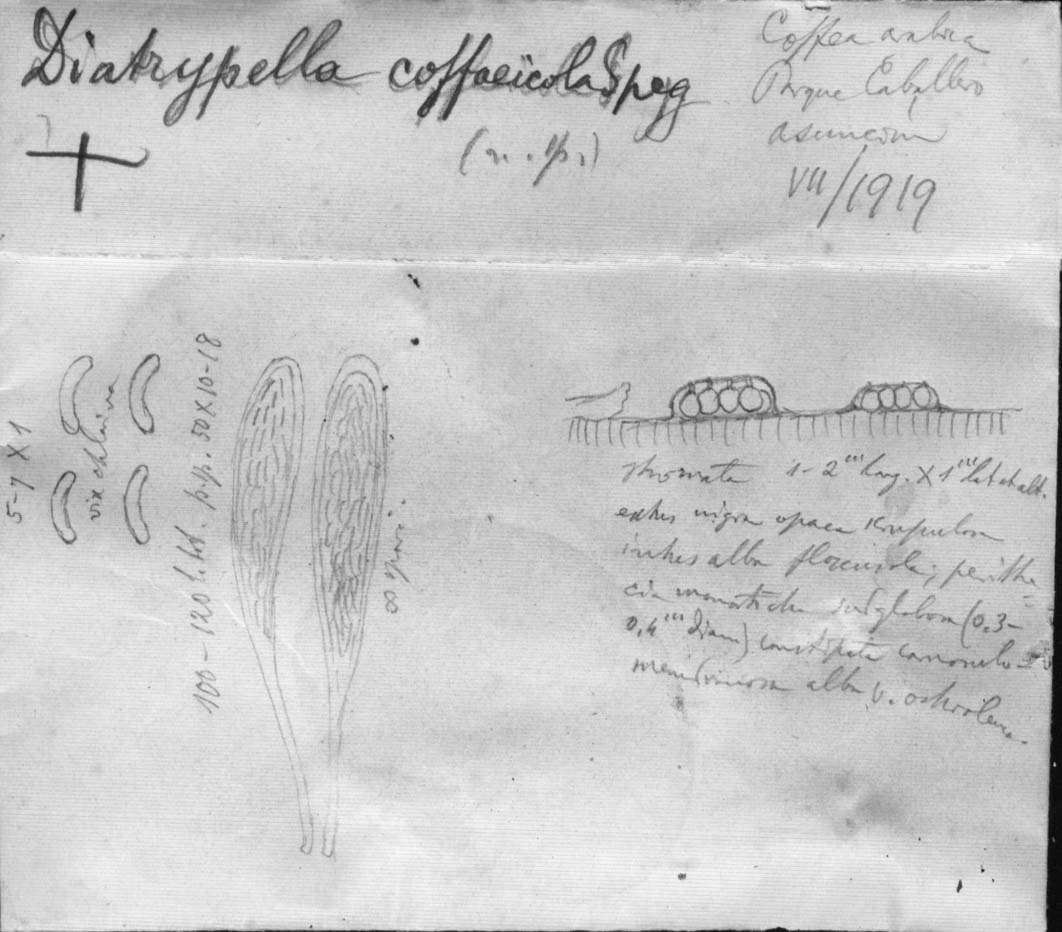 Diatrypella coffaeicola Speg
(n. sp.)
Coffea arabica
Parque Caballero
asuncion
VII/1919
5-7 X 1
vix chlorina
100-120 l. tot. p. sp. 50 X 10-18
∞ spori
stromata 1-2''' long. X 1''' lat et alt.
extus nigra opaca
intus alba floccosula; perithe
cia monosticha subglobosa (0,3-
0,4''' diam) constipata carnosulo-
membranosa alba v. ochroleuca.